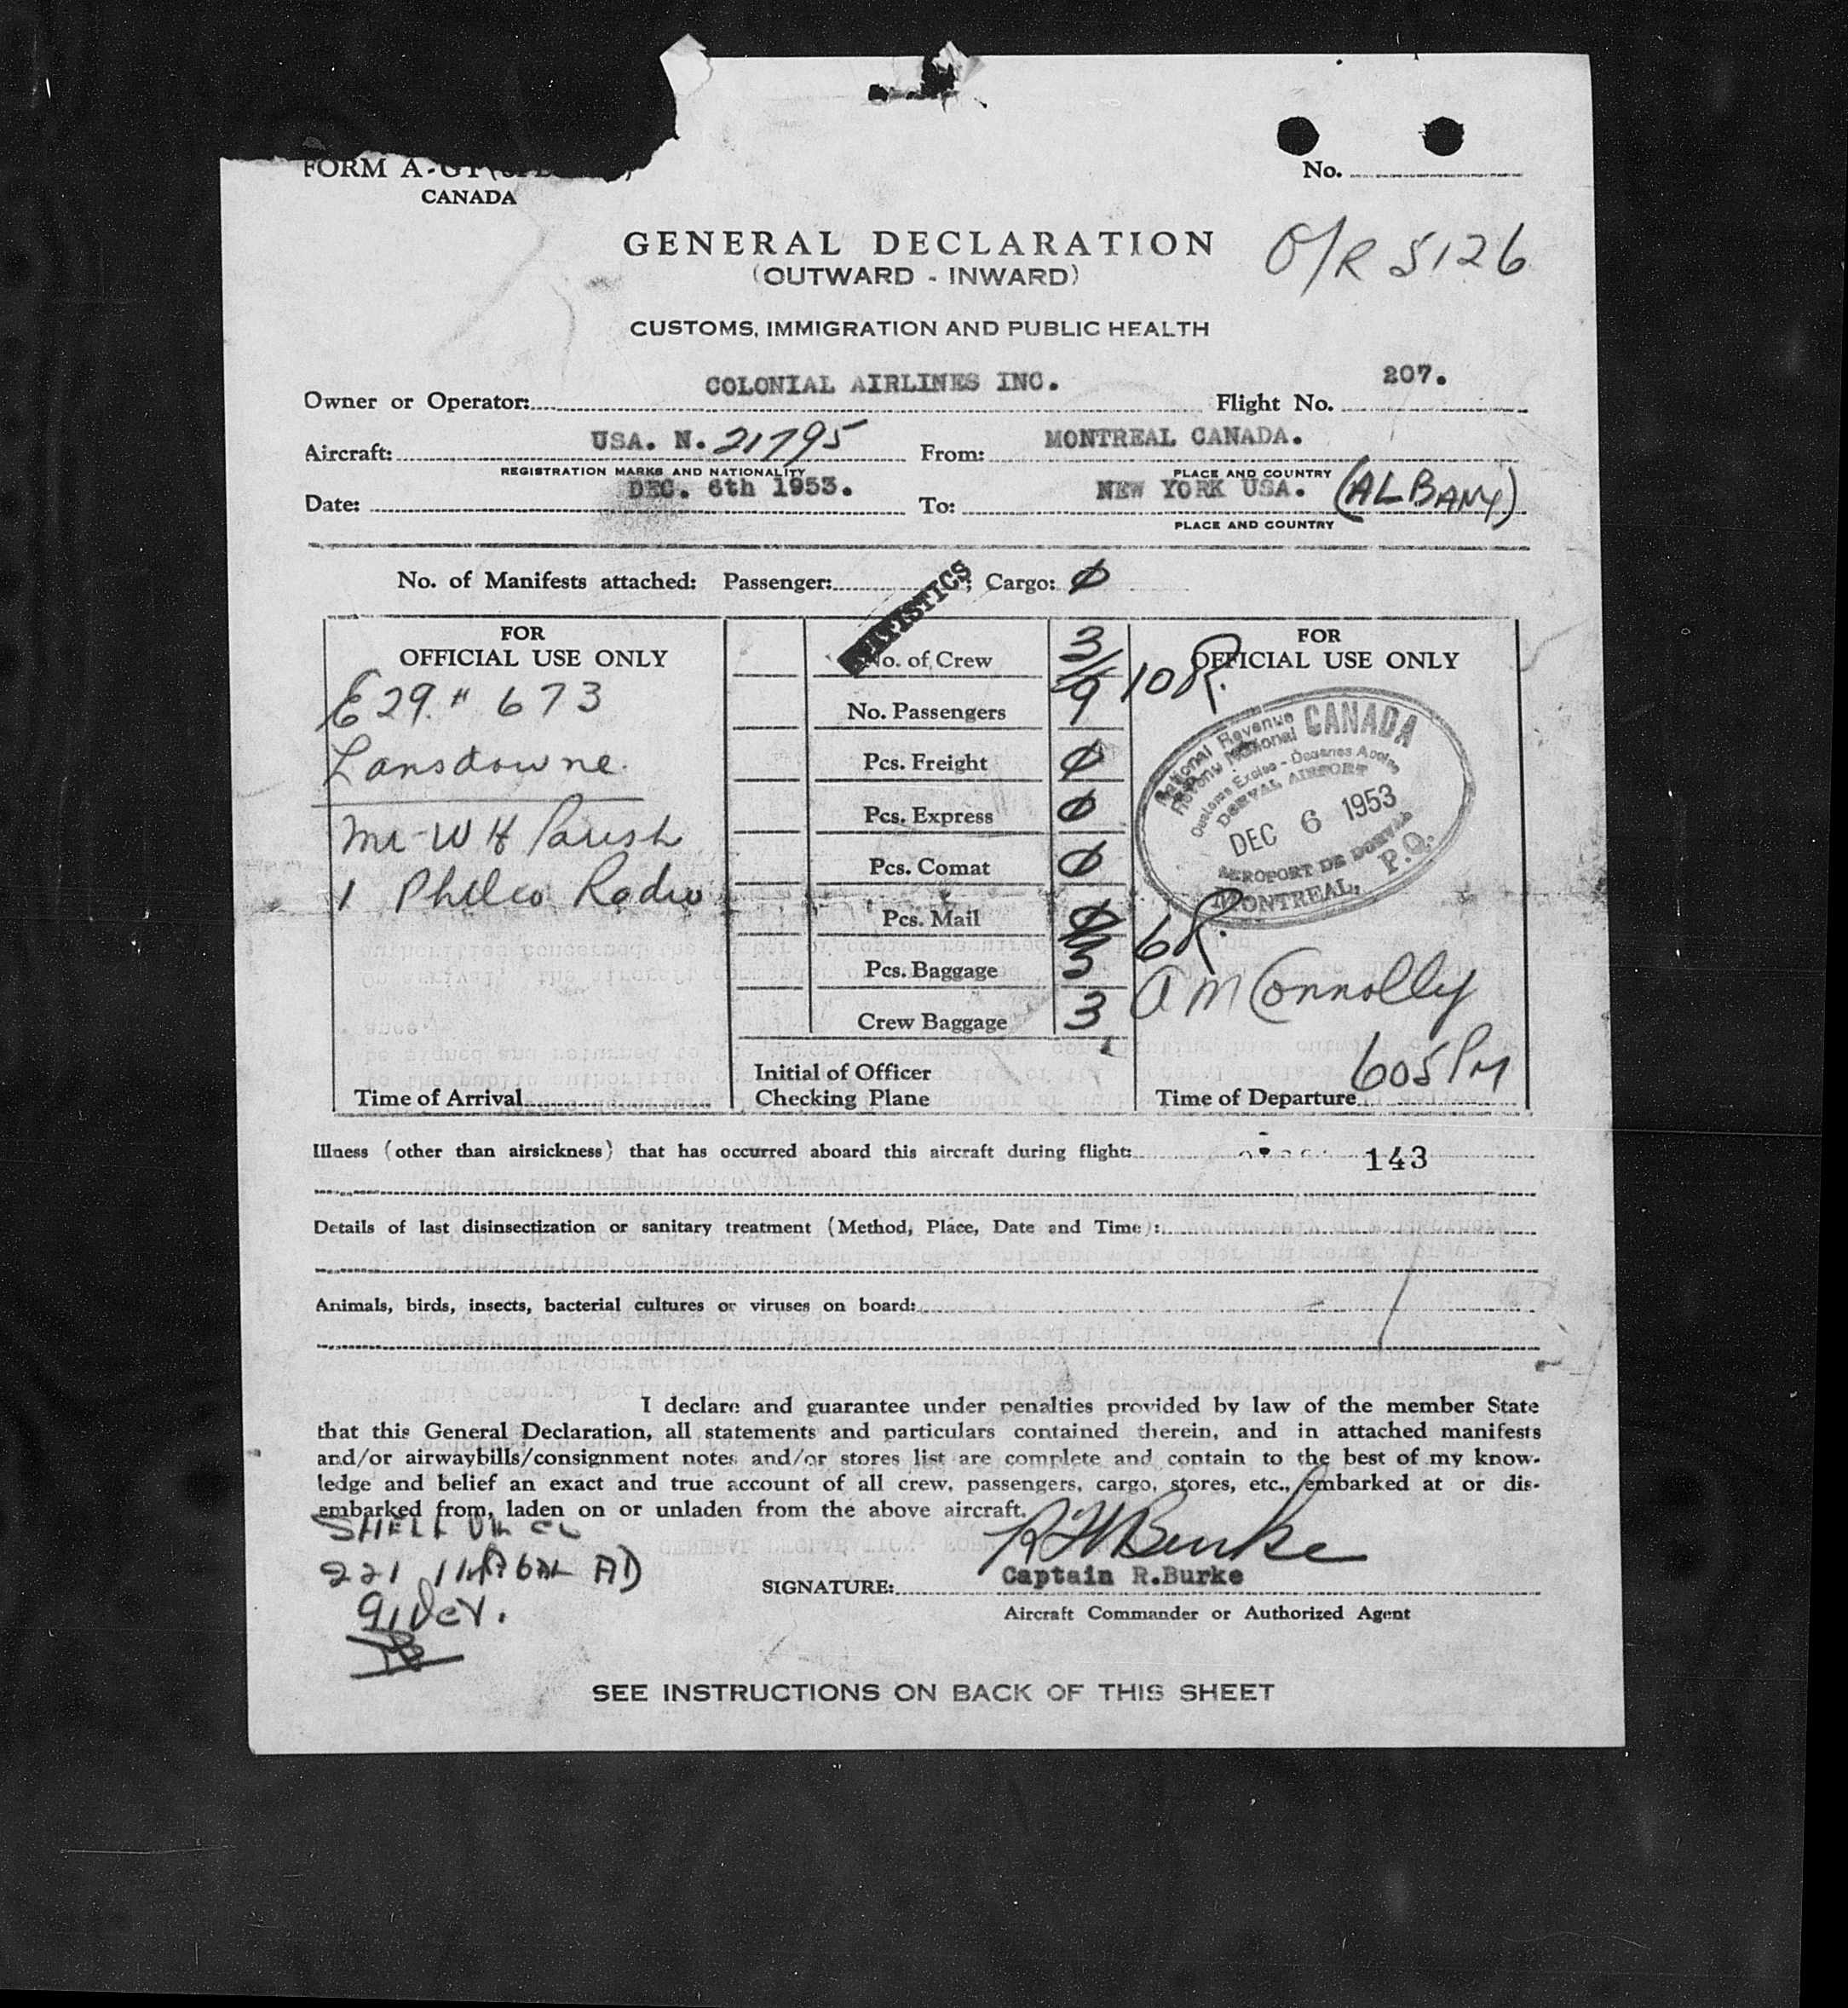 FORM A-G1
CANADA
No.
GENERAL DECLARATION
(OUTWARD - INWARD)
O/R 5126
CUSTOMS, IMMIGRATION AND PUBLIC HEALTH
Owner or Operator: COLONIAL AIRLINES INC. Flight No. 207.
Aircraft: USA. N. 21795 From: MONTREAL CANADA.
REGISTRATION MARKS AND NATIONALITY PLACE AND COUNTRY
Date: DEC. 6th 1953. To: NEW YORK USA. (ALBANY)
PLACE AND COUNTRY
No. of Manifests attached: Passenger: ; Cargo: 0
STATISTICS
FOR
OFFICIAL USE ONLY
E29 # 673
Lansdowne
Mr W H Parish
1 Philco Radio
Time of Arrival
No. of Crew 3
No. Passengers 9
Pcs. Freight 0
Pcs. Express 0
Pcs. Comat 0
Pcs. Mail 0
Pcs. Baggage 5
Crew Baggage 3
Initial of Officer
Checking Plane
FOR
OFFICIAL USE ONLY
10R.
National Revenue CANADA
Revenu National
Customs Excise - Douanes Accise
DORVAL AIRPORT
DEC 6 1953
AEROPORT DE DORVAL
MONTREAL, P.Q.
6R.
A M Connolly
605 PM
Time of Departure
Illness (other than airsickness) that has occurred aboard this aircraft during flight: 143
Details of last disinsectization or sanitary treatment (Method, Place, Date and Time):
Animals, birds, insects, bacterial cultures or viruses on board:
I declare and guarantee under penalties provided by law of the member State
that this General Declaration, all statements and particulars contained therein, and in attached manifests
and/or airwaybills/consignment notes and/or stores list are complete and contain to the best of my know-
ledge and belief an exact and true account of all crew, passengers, cargo, stores, etc., embarked at or dis-
embarked from, laden on or unladen from the above aircraft.
SHELL OIL CO
221 GAL AD
R Burke
SIGNATURE: Captain R.Burke
Aircraft Commander or Authorized Agent
SEE INSTRUCTIONS ON BACK OF THIS SHEET